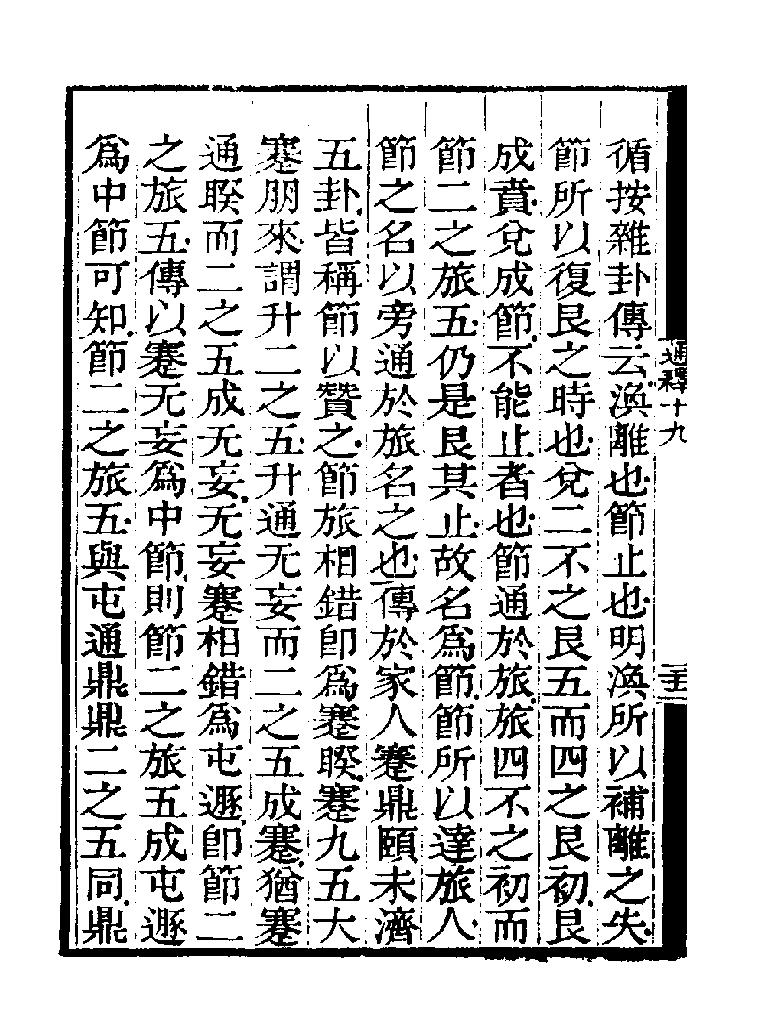 循按雜卦傳云渙離也節止也明渙所以補離之失
節所以復艮之時也兌二不之艮五而四之艮初艮
成賁兌成節不能止者也節通於旅旅四不之初而
節二之旅五仍是艮其止故名爲節節所以達旅人
節之名以旁通於旅名之也傳於家人蹇鼎頤未濟
五卦皆稱節以贊之節旅相錯卽爲蹇睽蹇九五大
蹇朋來謂升二之五升通无妄而二之五成蹇猶蹇
通睽而二之五成无妄无妄蹇相錯爲屯遯卽節二
之旅五傳以蹇无妄爲中節則節二之旅五成屯遯
爲中節可知節二之旅五與屯通鼎鼎二之五同鼎
通釋十九